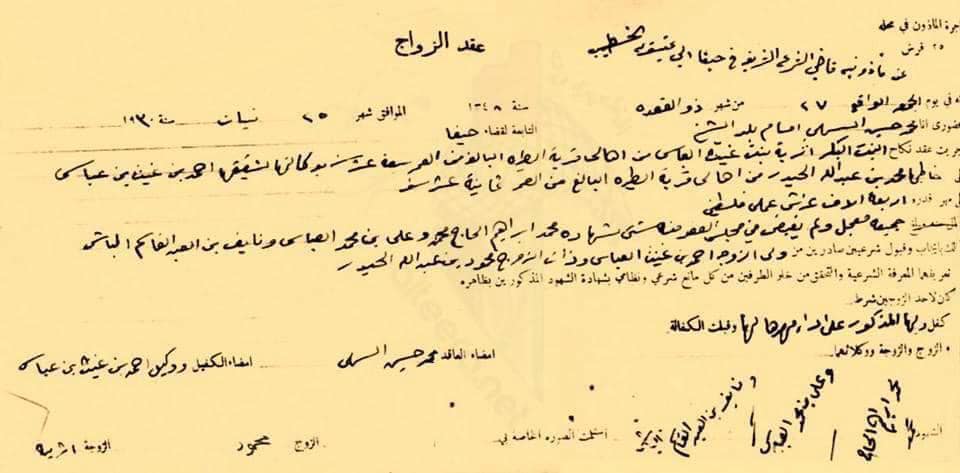 اجرة المأذون في محله
عقد الزواج
٢٥ قرش
عن مأذونية قاضي الشرع الشريف في حيفا الى الخطيب
في يوم الجمعه الواقع ٢٧ من شهر ذو القعده سنة ١٣٤٨ الموافق شهر ٢٥ نيسان سنة ١٩٣٠
حضورى انا محمد حسين السهلي امام بلد الشيخ التابعة لقضاء حيفا
جريت عقد نكاح البنت البكر بنت غيث العباسي من اهالي قرية الطيره البالغه من العمر سبعة عشر سنه بوكالة شقيقها احمد بن غيث بن عباسى
محمد بن عبدالله الحيدر من اهالى قرية الطيره البالغ من العمر ثمانية عشر سنه
مهر قدره اربعة الاف غرش عملى فلسطيني
جميعه معجل ولم يقبض في مجلس العقد بشهاده محمد ابراهيم الحاج محمد وعلى بن محمد العباسى ونايف بن العبد القاسم
بايجاب وقبول شرعيين صادرين من ولى الزوجه احمد بن غيث العباسى وذات الزوج محمود بن عبدالله الحيدر
تعريفهما المعرفة الشرعية والتحقق من خلو الطرفين من كل مانع شرعي ونظامي بشهادة الشهود المذكورين بظاهره
كان لاحد الزوجين شرط
كفل وليها المذكور على اداء مهرها لها وقبلت الكفالة
الزوج والزوجة ووكلائهما
امضاء العاقد محمد حسين السهلى
امضاء الكفيل ووكيل احمد بن غيث بن عباسى
الشهود محمد ابراهيم الحاج محمد
وعلى بن محمد العباسى
ونايف بن العبد القاسم
استلمت الصورة الخاصة في
الزوج محمود
الزوجة